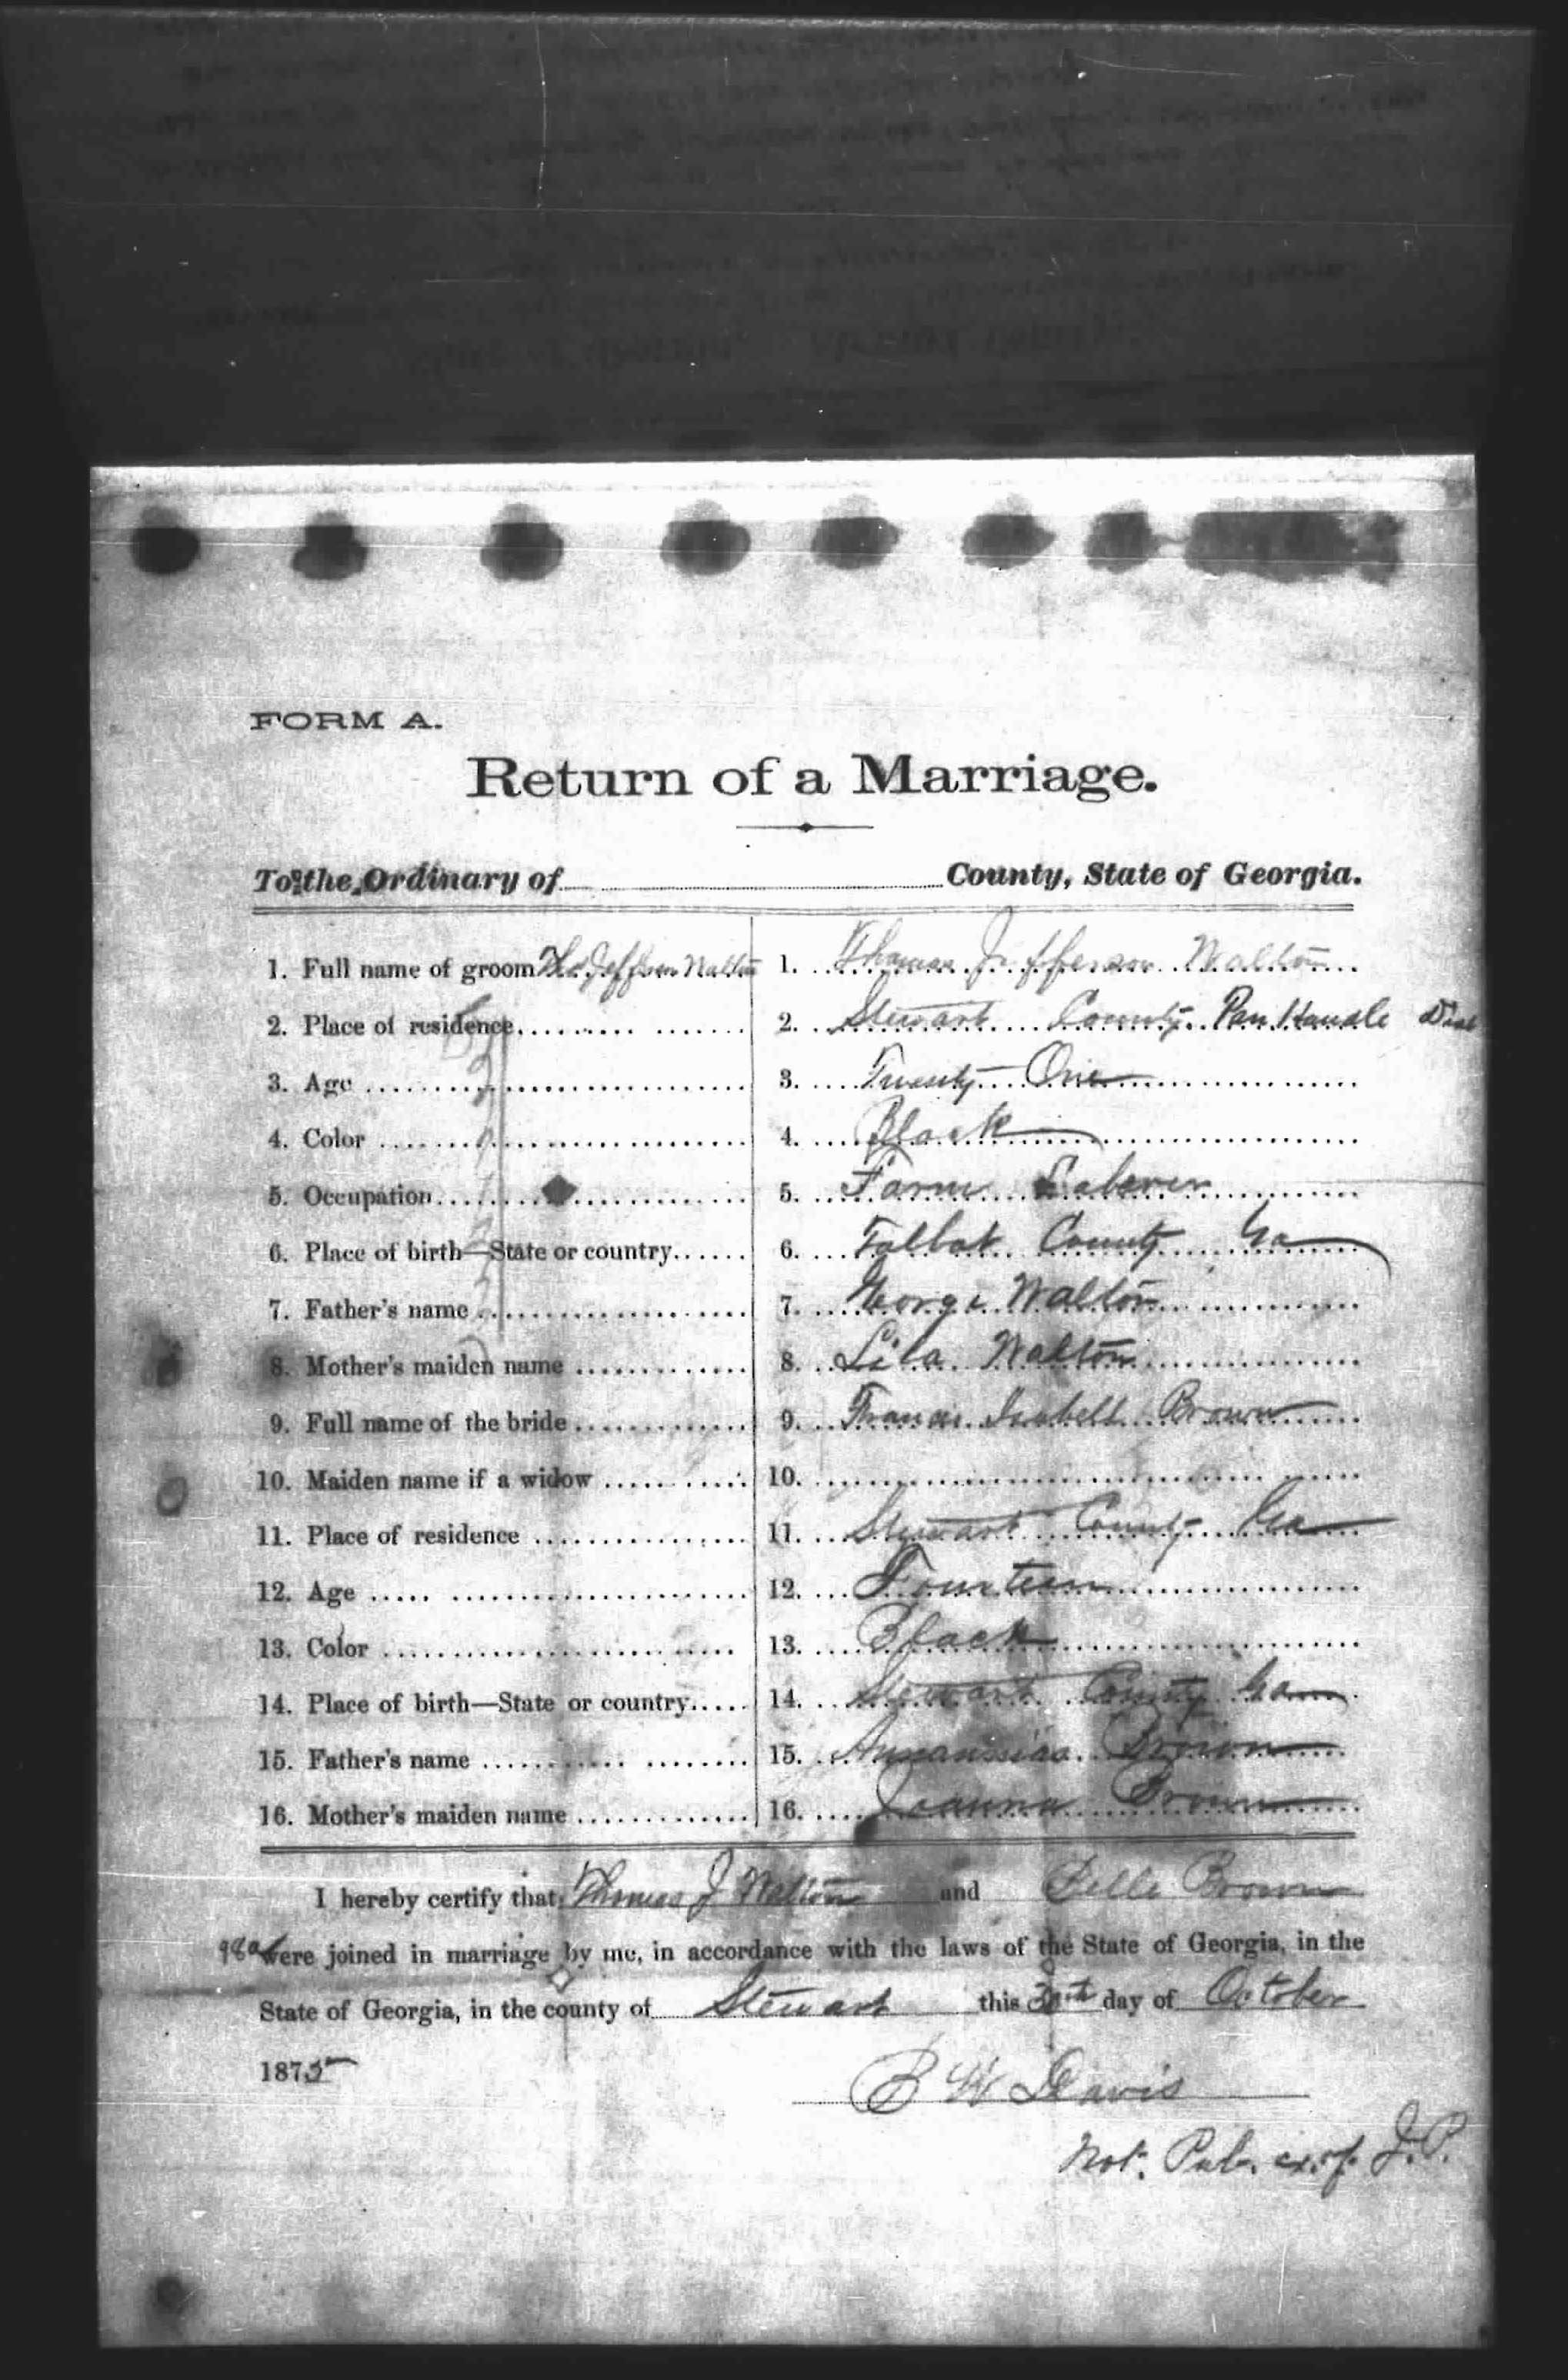 FORM A.
Return of a Marriage.
To the Ordinary of County, State of Georgia.
1. Full name of groom Th Jefferson Walton 1. Thomas Jefferson Walton
2. Place of residence 2. Stewart County Pan Handle Dist
3. Age 3. Twenty One
4. Color 4. Black
5. Occupation 5. Farm Laborer
6. Place of birth—State or country 6. Talbot County Ga
7. Father's name 7. George Walton
8. Mother's maiden name 8. Walton
9. Full name of the bride 9. Francis Isabell Brown
10. Maiden name if a widow 10.
11. Place of residence 11. Stewart County Ga
12. Age 12. Fourteen
13. Color 13. Black
14. Place of birth—State or country 14. Stewart County Ga
15. Father's name 15. Brown
16. Mother's maiden name 16. Joanna Brown
I hereby certify that Thomas J Walton and Brown
were joined in marriage by me, in accordance with the laws of the State of Georgia, in the
State of Georgia, in the county of Stewart this day of October
1875
B W Davis
Not. Pub. ex. of. J.P.